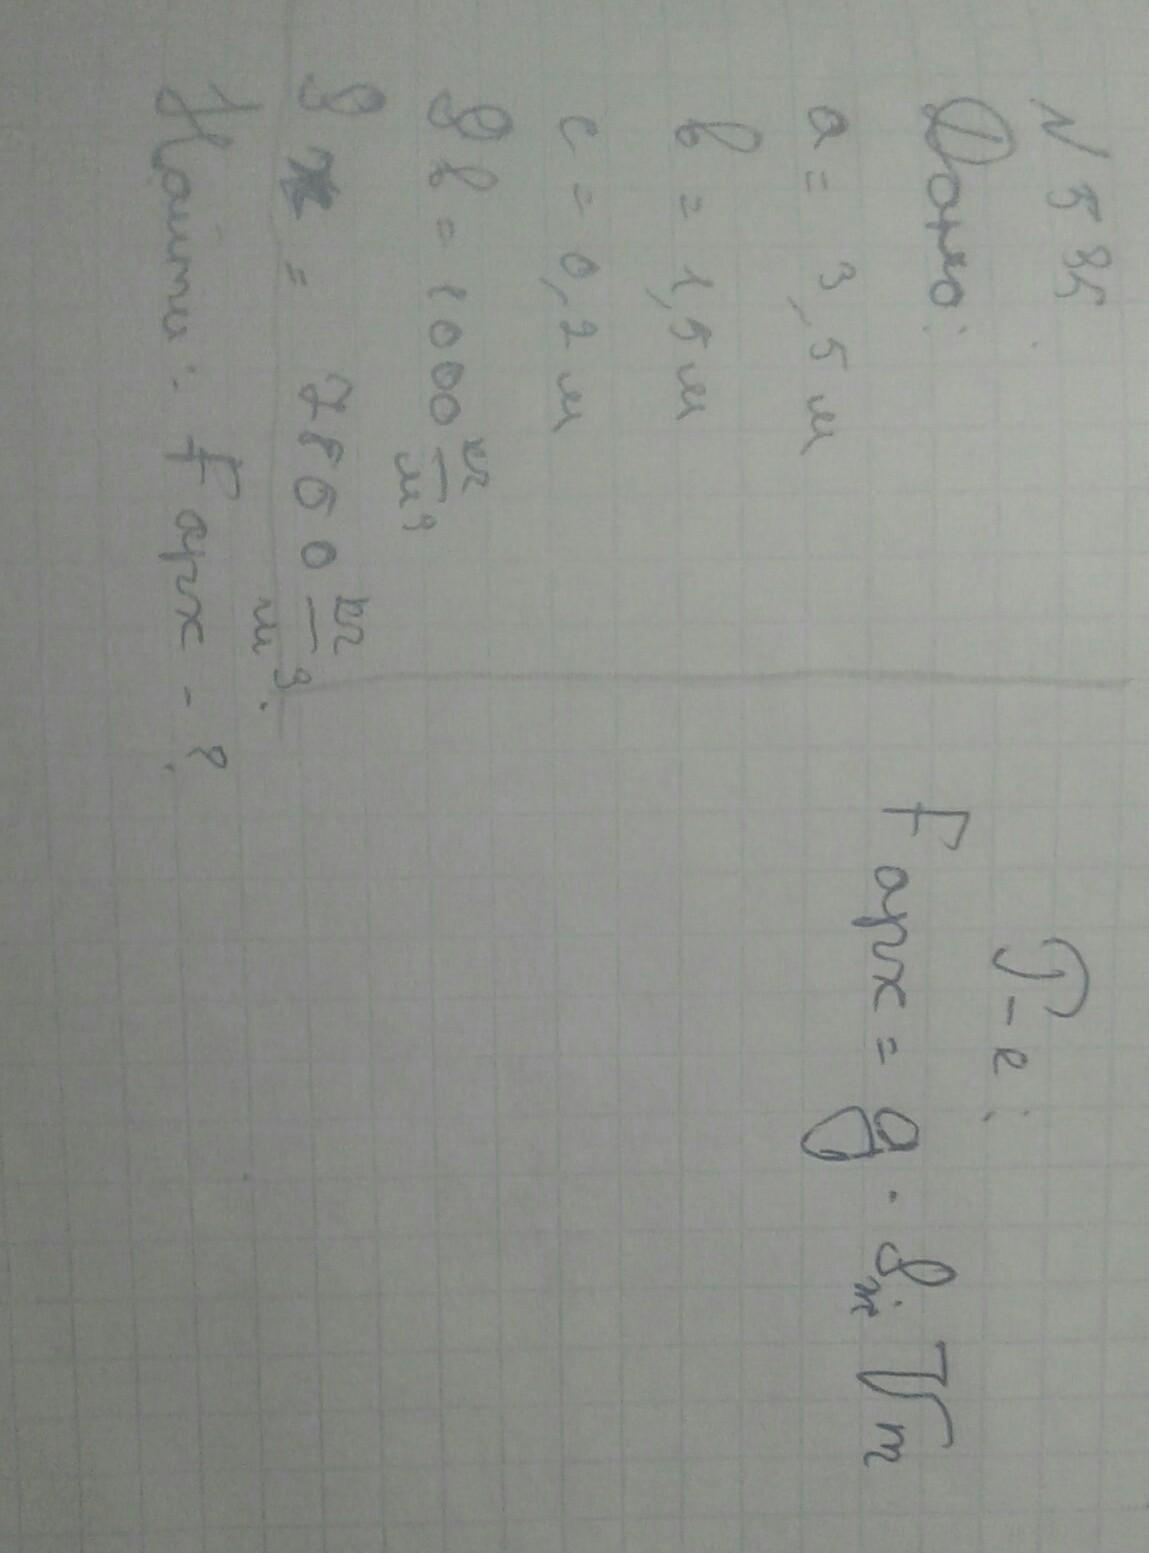 N 585
Дано:
a = 3,5 м
b = 1,5 м
c = 0,2 м
ρ в = 1000 кг/м³
ρ = 7860 кг/м³.
Найти: Fарх - ?
Р-е:
Fарх = g · ρж Vт